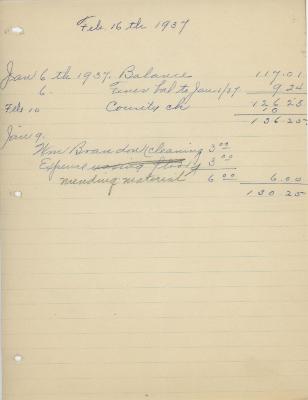 Feb. 16th 1937
Jan 6th 1937. Balance 117.01
6. Fines bal to Jan 1/37 9.24
126.25
Feb 10 Courits ch 10
136.25
Jan 9.
Wm Brandow (cleaning 3 00
Expense 3 00
mending material 6 00 6.00
130.25